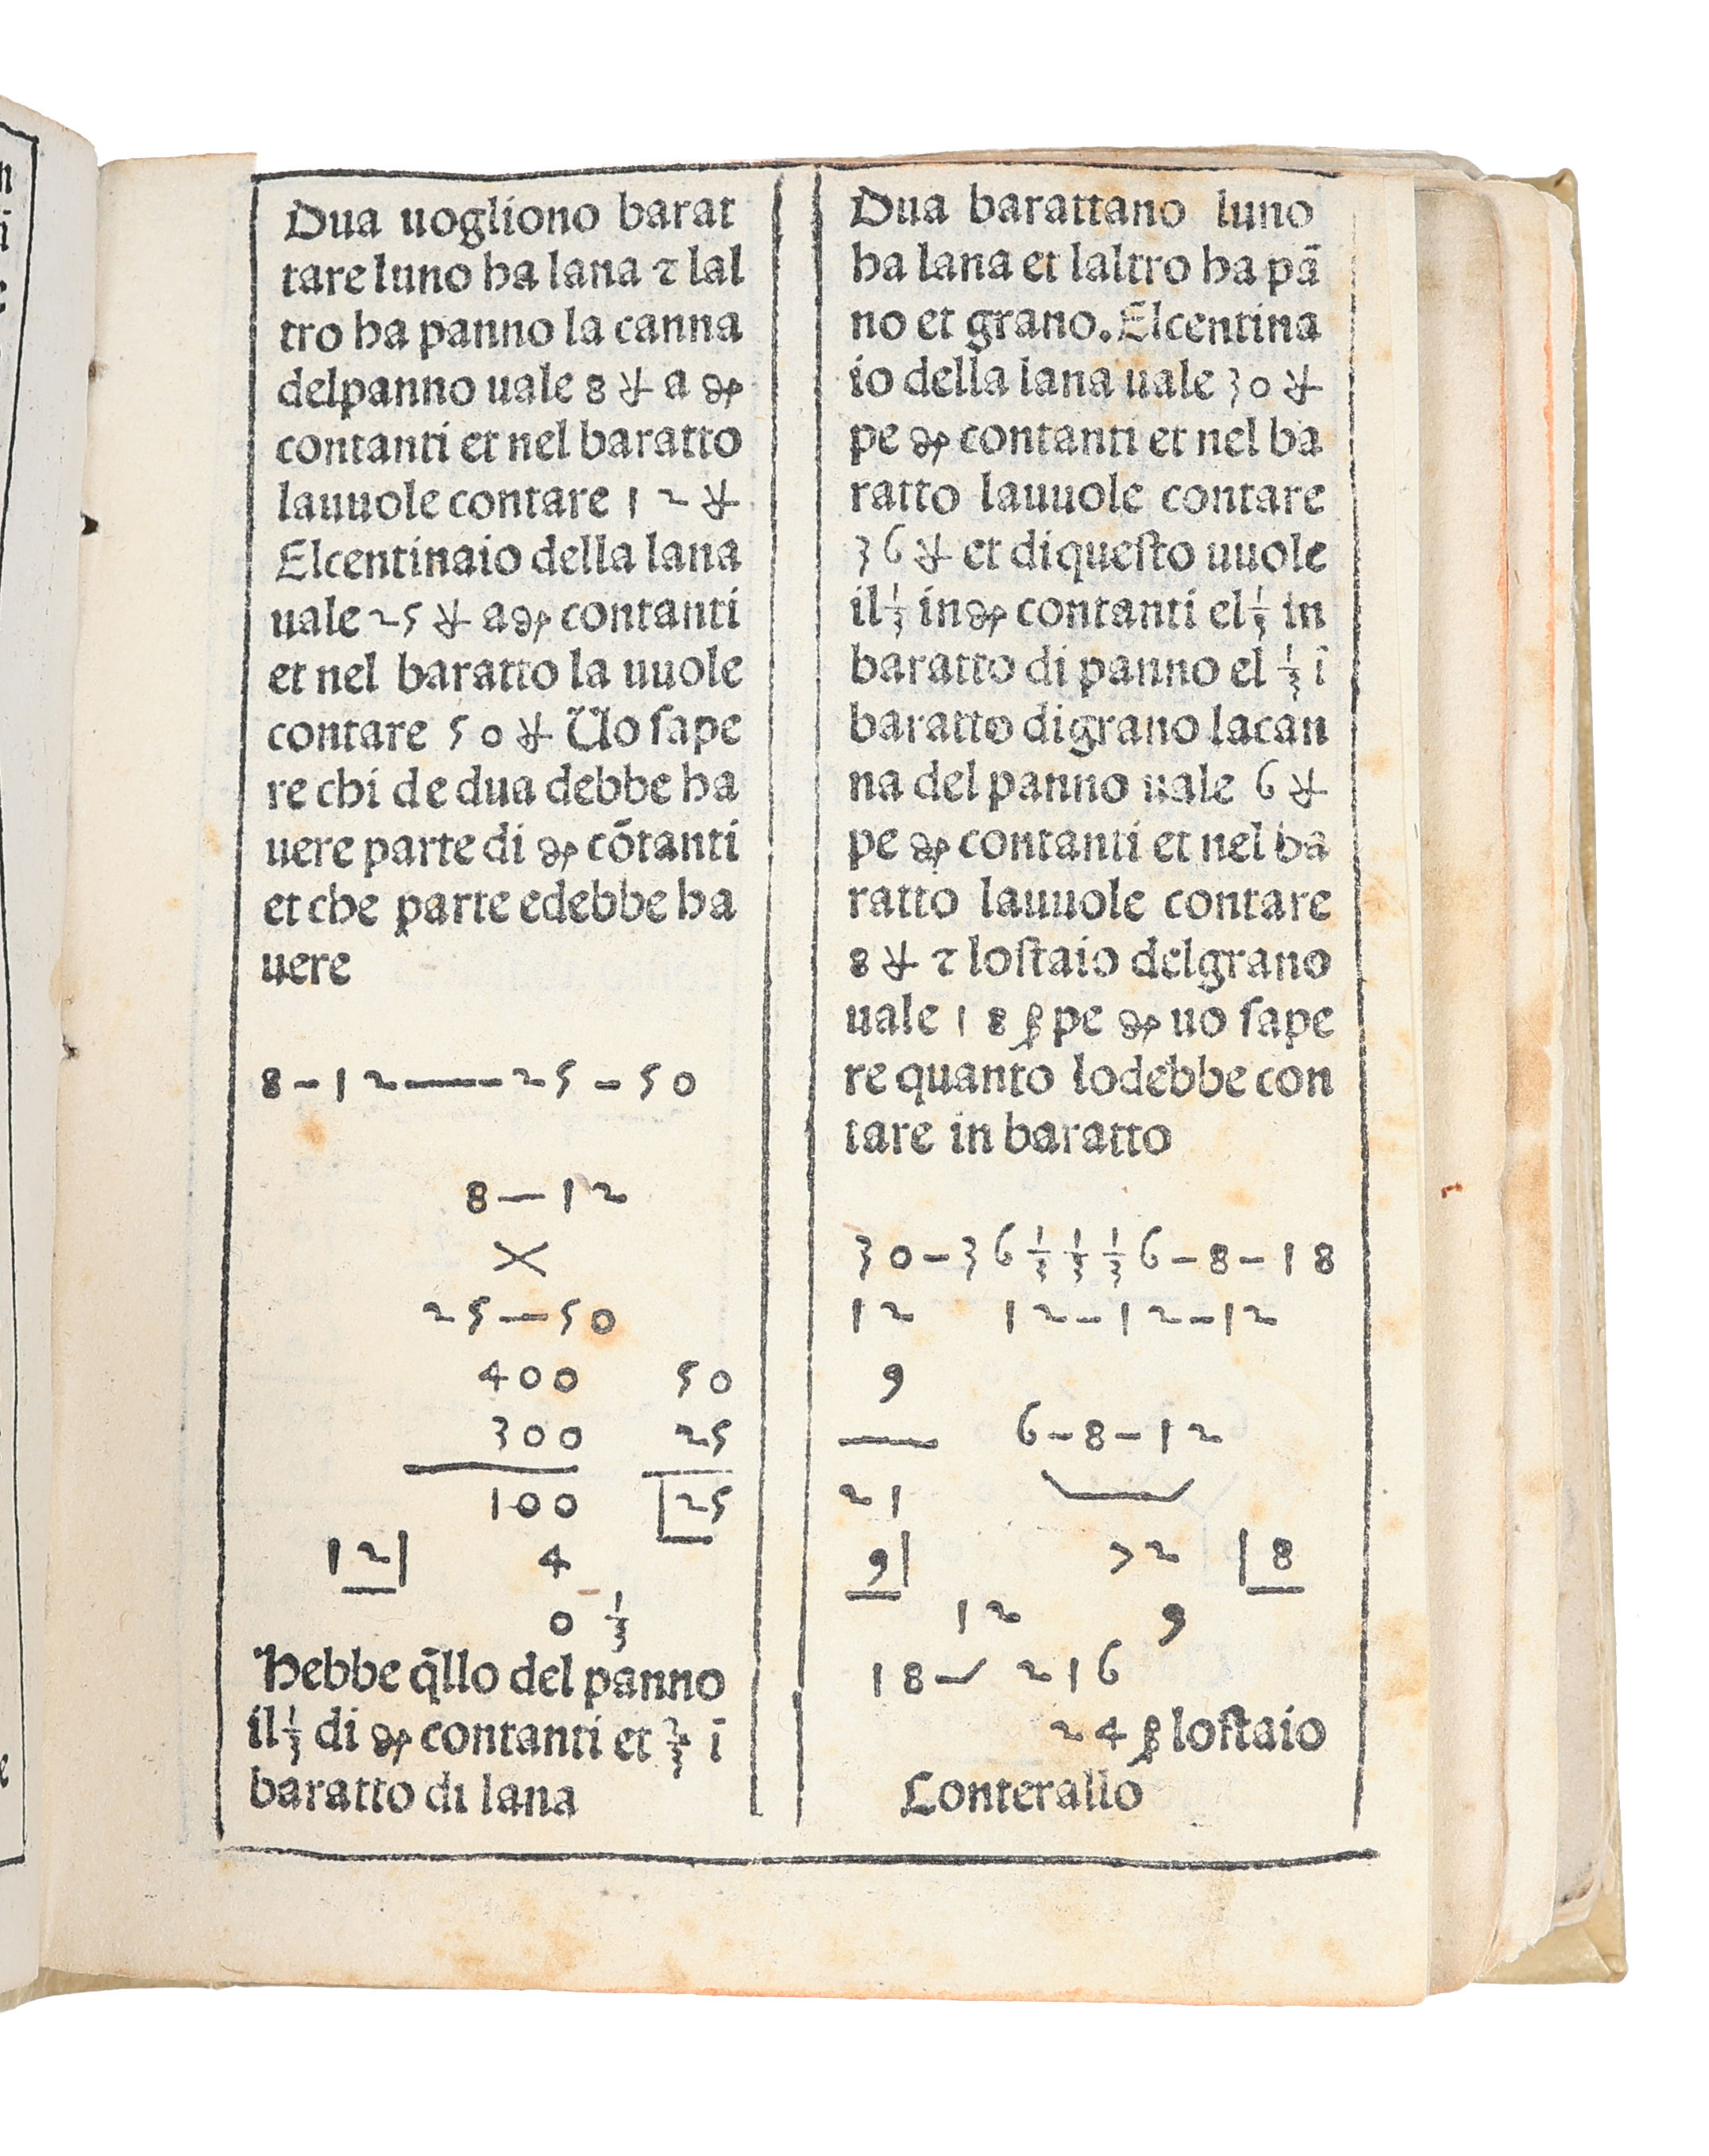 Dua uogliono barat
tare luno ha lana ⁊ lal
tro ha panno la canna
delpanno uale 8 a
contanti et nel baratto
lauuole contare 12
Elcentinaio della lana
uale 25 a contanti
et nel baratto la uuole
contare 50 Uo sape
re chi de dua debbe ha
uere parte di cōtanti
et che parte edebbe ha
uere
8-12——25-50
8—12
×
25—50
400 50
300 25
100 25
12 4
0 1/3
Hebbe q̄llo del panno
il 1/3 di contanti et 2/3 ī
baratto di lana
Dua barattano luno
ha lana et laltro ha pā
no et grano. Elcentina
io della lana uale 30
pe contanti et nel ba
ratto lauuole contare
36 et diquesto uuole
il 1/3 in contanti el 1/3 in
baratto di panno el 1/3 ī
baratto digrano lacan
na del panno uale 6
pe contanti et nel ba
ratto lauuole contare
8 ⁊ lostaio delgrano
uale 18 pe uo sape
re quanto lodebbe con
tare in baratto
30-36 1/3 1/3 1/3 6-8-18
12 12-12-12
9
6-8-12
21
9 72 8
12 9
18 216
24 lostaio
Conterallo